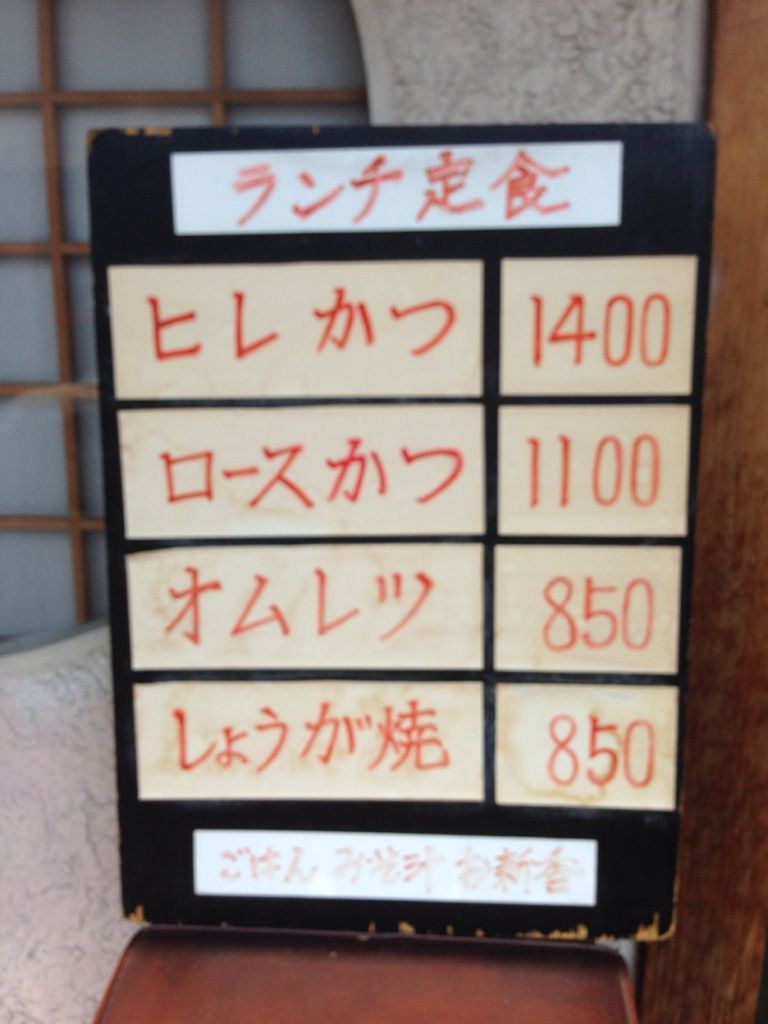 ランチ定食
ヒレかつ 1400
ロースかつ 1100
オムレツ 850
しょうが焼 850
ごはん みそ汁 お新香